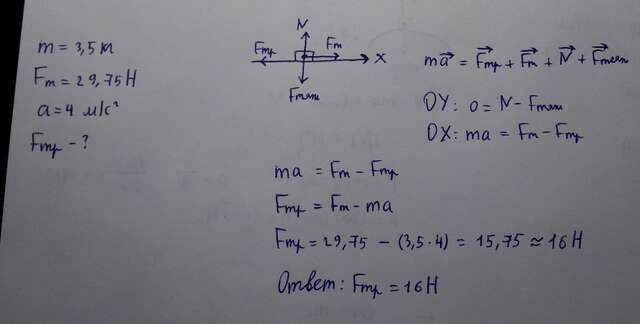 m = 3,5 кг
Fт = 29,75 Н
a = 4 м/с²
Fтр - ?
N
Fтр
Fт
X
Fтяж
ma⃗ = F⃗тр + F⃗т + N⃗ + F⃗тяж
OY: 0 = N - Fтяж
OX: ma = Fт - Fтр
ma = Fт - Fтр
Fтр = Fт - ma
Fтр = 29,75 - (3,5·4) = 15,75 ≈ 16 Н
Ответ: Fтр = 16 Н